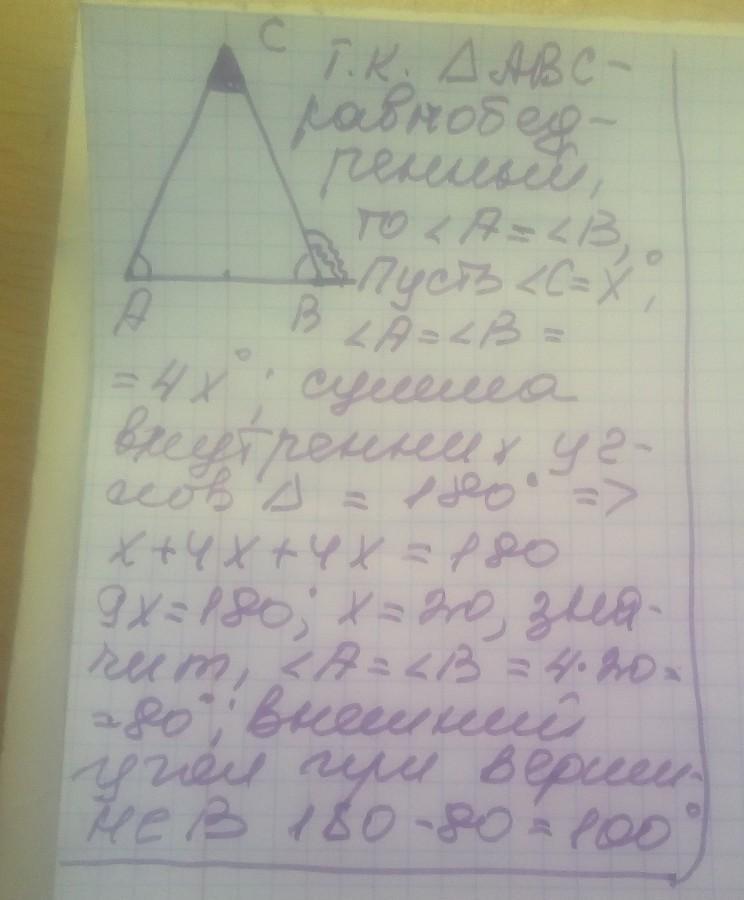 C
Т.к. △ABC-
равнобед-
ренный,
то <A=<B,
Пусть <C=x°;
A
B
<A=<B =
=4x°; сумма
внутренних уг-
лов △ = 180° =>
x+4x+4x=180
9x=180; x=20, зна-
чит, <A=<B =4·20=
=80°; внешний
угол при верши-
не B 180-80=100°